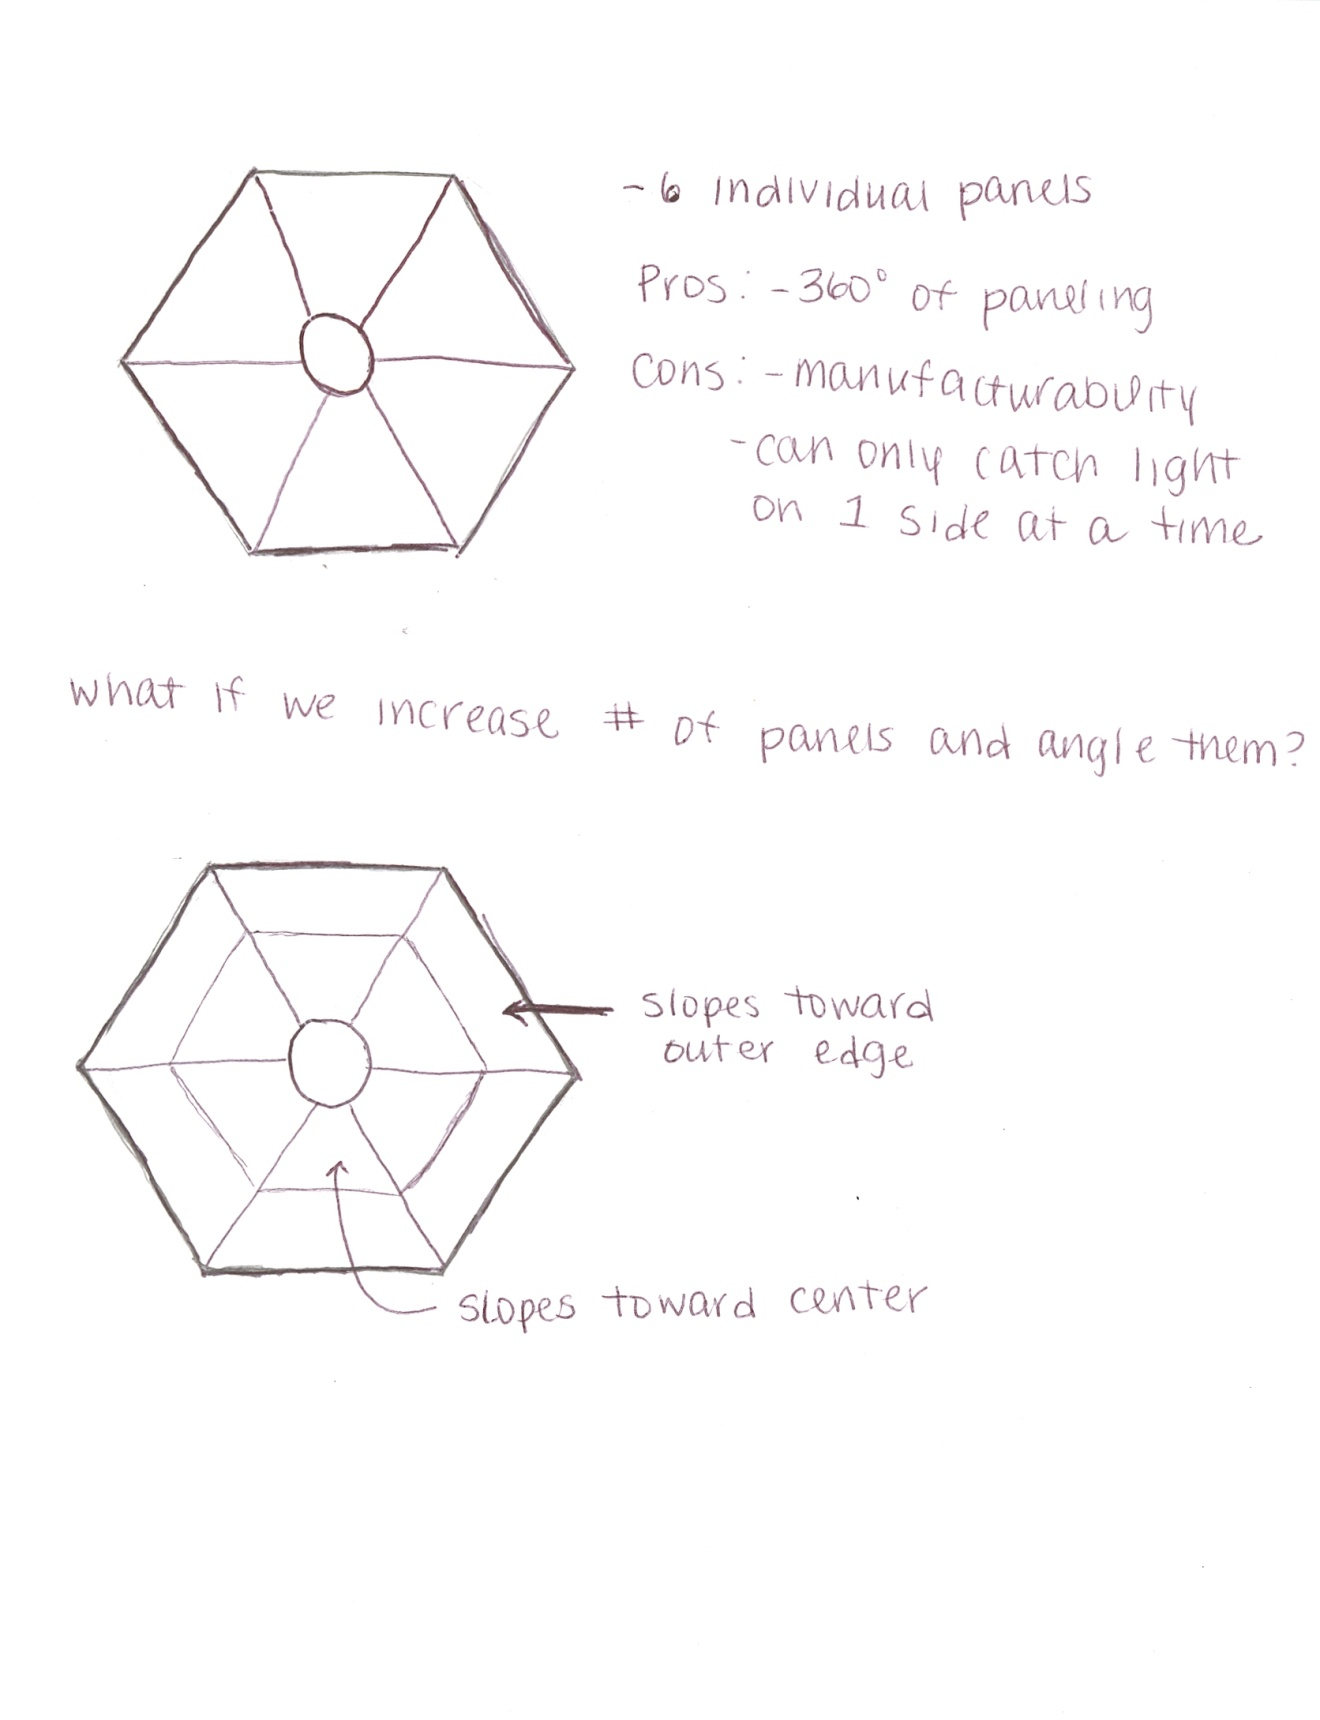 - 6 individual panels
Pros: - 360° of paneling
Cons: - manufacturability
- can only catch light
on 1 side at a time
what if we increase # of panels and angle them?
slopes toward
outer edge
slopes toward center